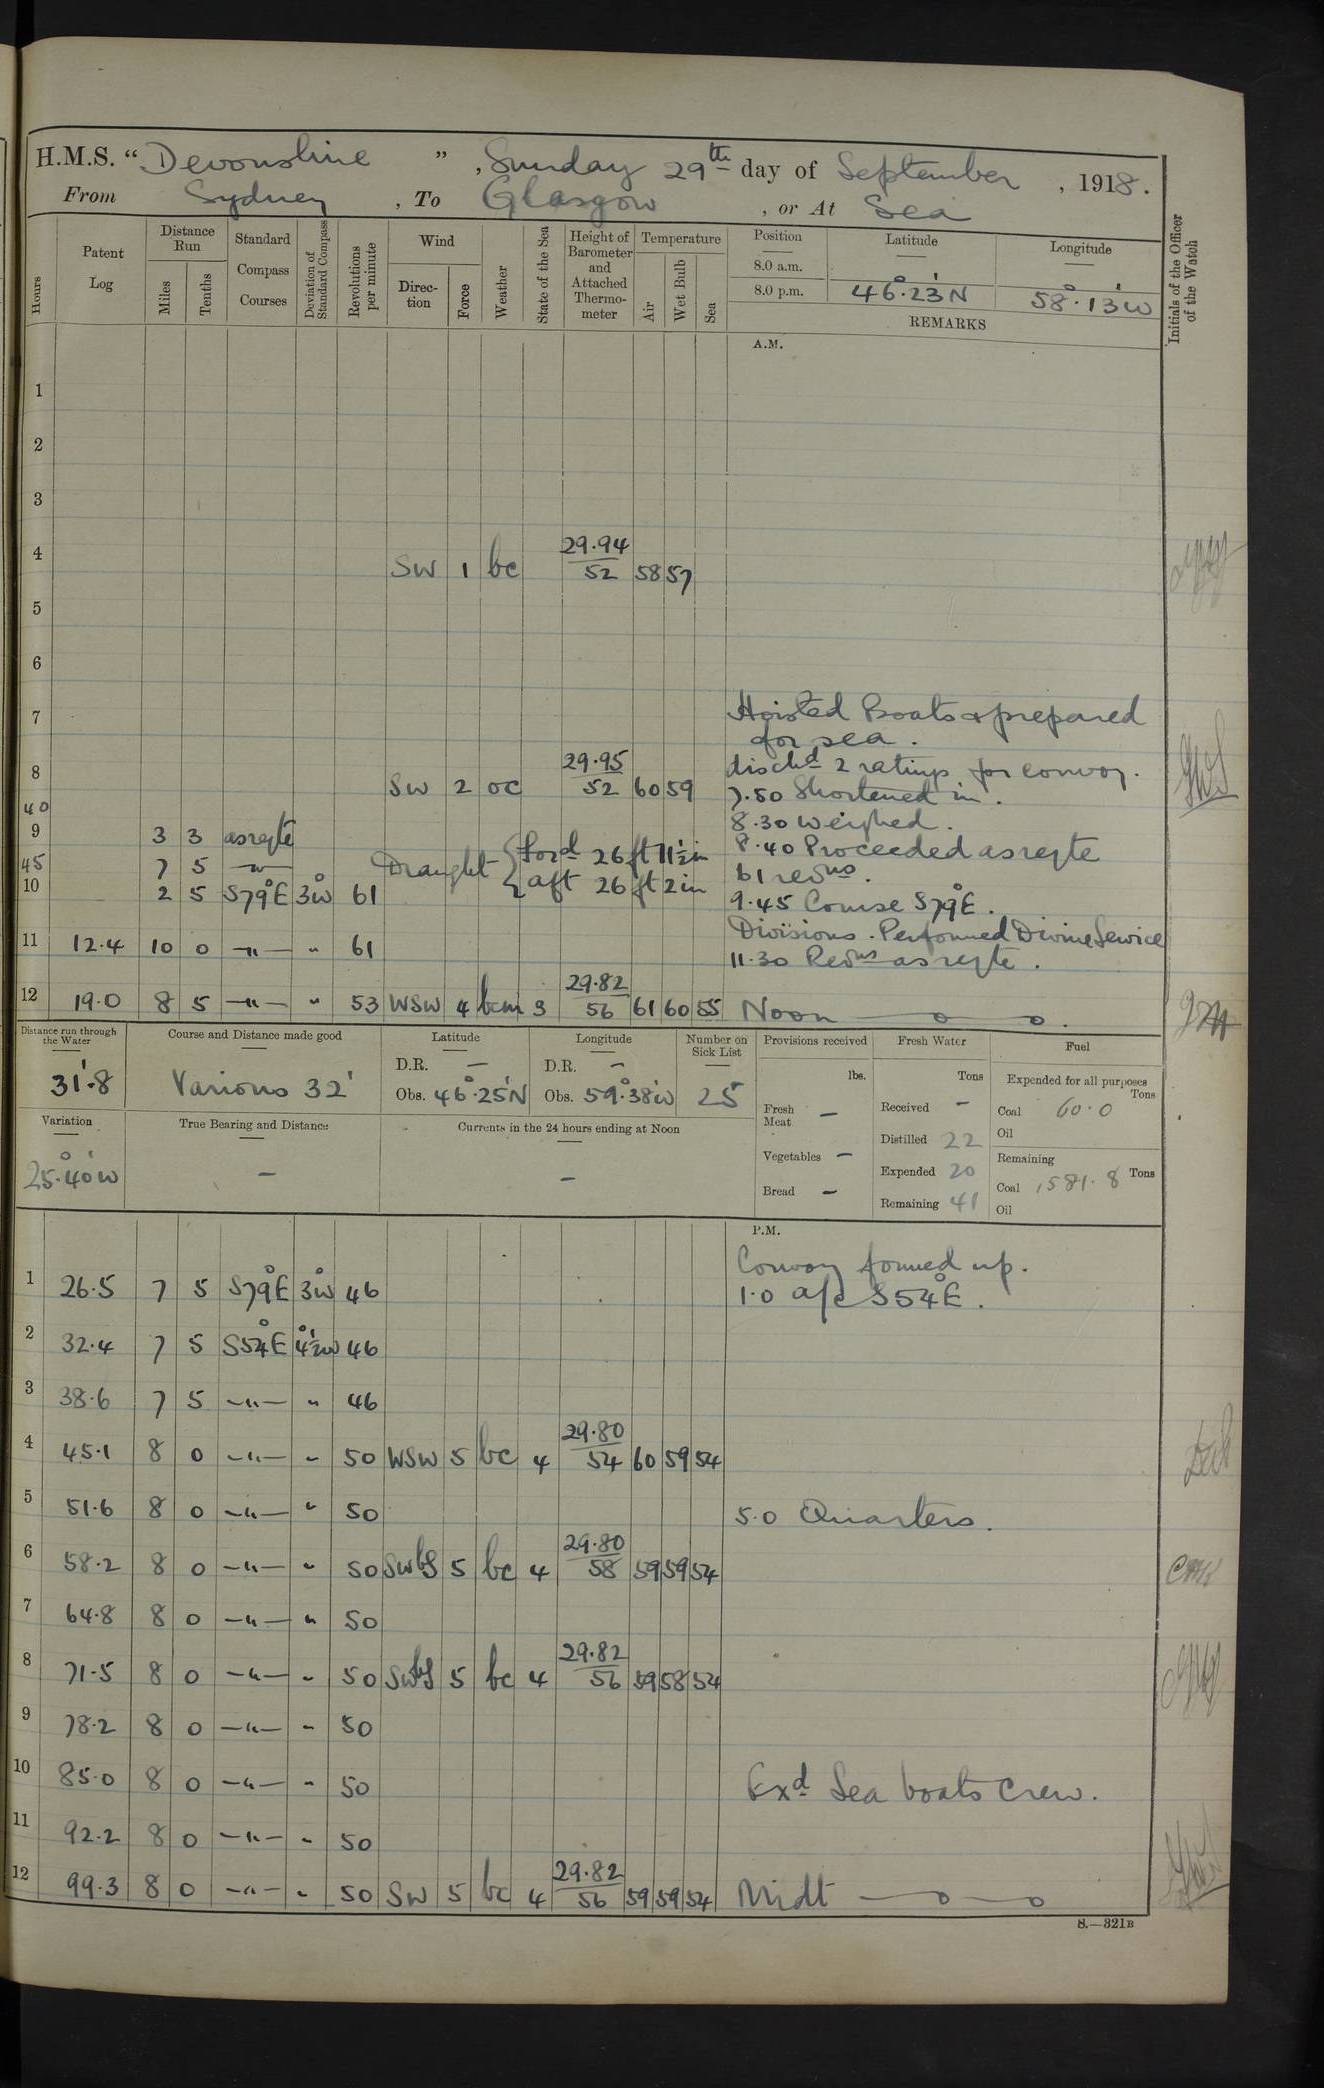 H.M.S. "Devonshire", Sunday 29th day of September, 1918.
From Sydney, To Glasgow, or At Sea
Hours
Patent Log
Distance Run
Miles
Tenths
Standard Compass Courses
Deviation of Standard Compass
Revolutions per minute
Wind
Direction
Force
Weather
State of the Sea
Height of Barometer and Attached Thermometer
Temperature
Air
Wet Bulb
Sea
Position
Latitude
Longitude
8.0 a.m.
8.0 p.m. 46°.23'N 58°.13'W
REMARKS
Initials of the Officer of the Watch
A.M.
1
2
3
4 SW 1 bc 29.94 52 58 57
5
6
7 Hoisted Boats & prepared
for sea.
8 SW 2 oc 29.95 52 60 59 disch'd 2 ratings for convoy.
7.50 Shortened in.
40 8.30 Weighed.
9 3 3 asreqte 8.40 Proceeded asreqte
45 7 5 –"– Draught { For'd 26 ft 11½ in 61 revns.
10 2 5 S79°E 3°W 61 aft 26 ft 2 in 9.45 Course S79°E.
11 12.4 10 0 –"– " 61 Divisions. Performed Divine Service
11.30 Revns asreqte.
12 19.0 8 5 –"– " 53 WSW 4 bcm 3 29.82 56 61 60 55 Noon
Distance run through the Water
31'.8
Course and Distance made good
Various 32'
Latitude
D.R. –
Obs. 46°.25'N
Longitude
D.R. –
Obs. 59°.38'W
Number on Sick List
25
Provisions received
lbs.
Fresh Meat –
Vegetables –
Bread –
Fresh Water
Tons
Received –
Distilled 22
Expended 20
Remaining 41
Fuel
Expended for all purposes
Tons
Coal 60.0
Oil
Remaining
Coal 1581.8 Tons
Oil
Variation
25°.40'W
True Bearing and Distance
–
Currents in the 24 hours ending at Noon
–
P.M.
Convoy formed up.
1 26.5 7 5 S79°E 3°W 46 1.0 a/c S54°E.
2 32.4 7 5 S54°E 4½°W 46
3 38.6 7 5 –"– " 46
4 45.1 8 0 –"– " 50 WSW 5 bc 4 29.80 54 60 59 54
5 51.6 8 0 –"– " 50 5.0 Quarters.
6 58.2 8 0 –"– " 50 SWbS 5 bc 4 29.80 58 59 59 54
7 64.8 8 0 –"– " 50
8 71.5 8 0 –"– " 50 SWbS 5 bc 4 29.82 56 59 58 54
9 78.2 8 0 –"– " 50
10 85.0 8 0 –"– " 50 Exd Sea boats Crew.
11 92.2 8 0 –"– " 50
12 99.3 8 0 –"– " 50 SW 5 bc 4 29.82 56 59 59 54 Midt
S.—321B